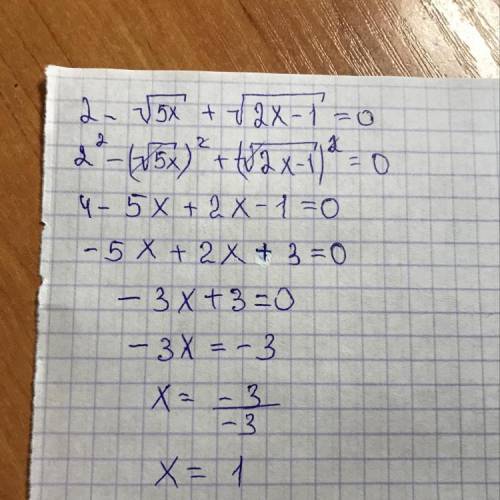 2 - √5x + √2x-1 = 0
2² - (√5x)² + (√2x-1)² = 0
4 - 5x + 2x - 1 = 0
- 5x + 2x + 3 = 0
- 3x + 3 = 0
- 3x = - 3
x = -3/-3
x = 1